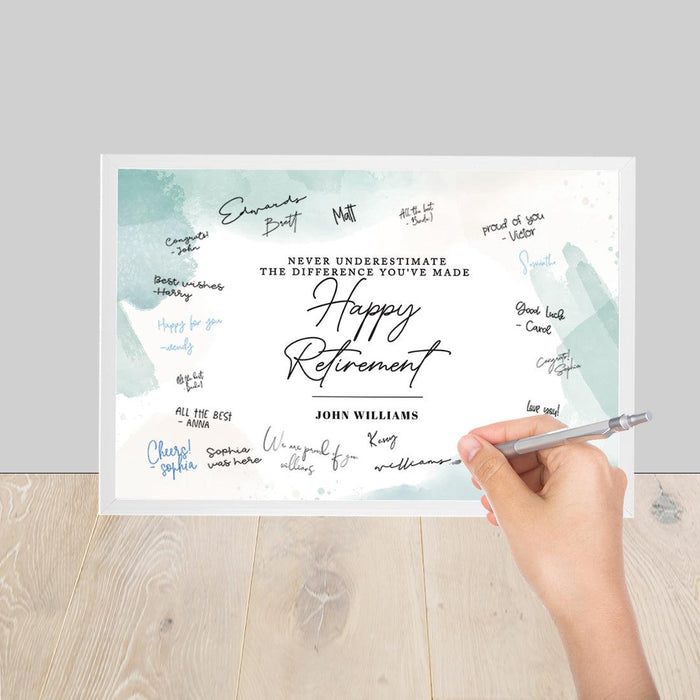 Edwards
Brett
Matt
All the best
proud of you
- Victor
Congrats!
- John
Samantha
NEVER UNDERESTIMATE
THE DIFFERENCE YOU'VE MADE
Best wishes
-Harry
Happy
Good Luck
- Carol
Happy for you
-wendy
Retirement
Congrats!
Sophia
All the best
JOHN WILLIAMS
ALL THE BEST
- ANNA
Love you!
Cheers!
- sophia
Sophia
was here
We are proud of you
williams
Kenny
williams